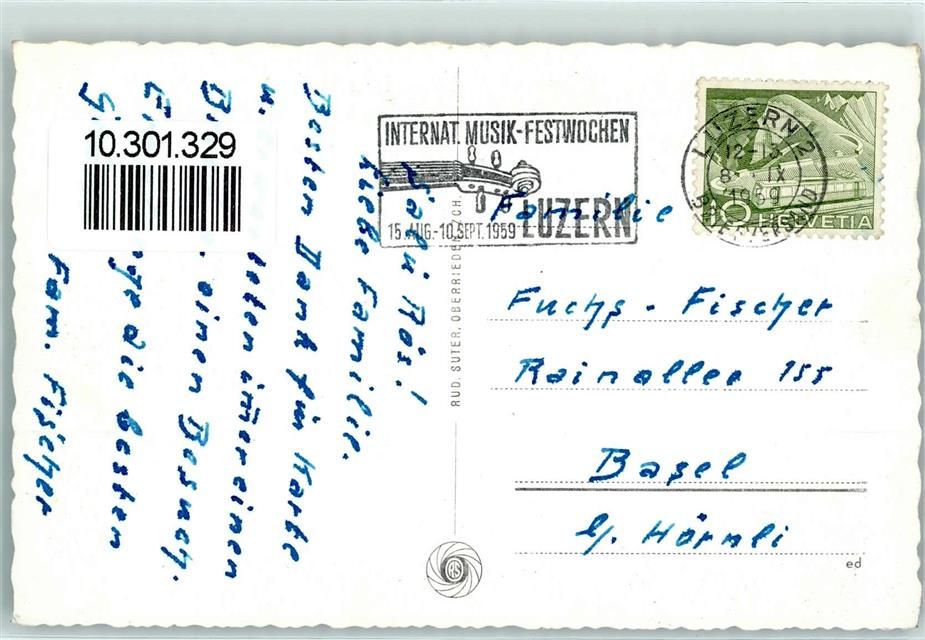 10.301.329
INTERNAT. MUSIK-FESTWOCHEN
15. AUG.-10. SEPT. 1959 LUZERN
LUZERN 2
12-13
8. IX
1959
BRIEFVERSAND
10 HELVETIA
Salü Rös!
Liebe Familie.
Besten Dank für Karte
u. einen
einen Besuch.
die besten
Fam. Fischer
RUD. SUTER, OBERRIEDEN-ZCH.
RS
Familie
Fuchs - Fischer
Rainallee 155
Basel
b/ Hörnli
ed